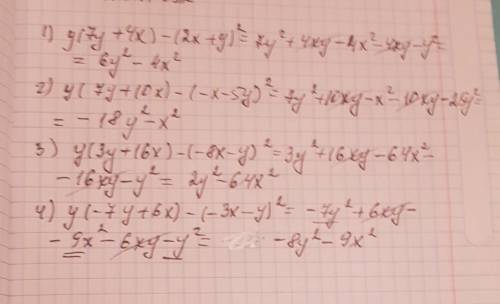 1) y(7y+4x)-(2x+y)²=7y²+4xy-4x²-4xy-y²=
= 6y²-4x²
2) y(7y+10x)-(-x-5y)²=7y²+10xy-x²-10xy-25y²=
= -18y²-x²
3) y(3y+16x)-(-8x-y)²=3y²+16xy-64x²-
-16xy-y²= 2y²-64x²
4) y(-7y+6x)-(-3x-y)²= -7y²+6xy-
-9x²-6xy-y²= -8y²-9x²